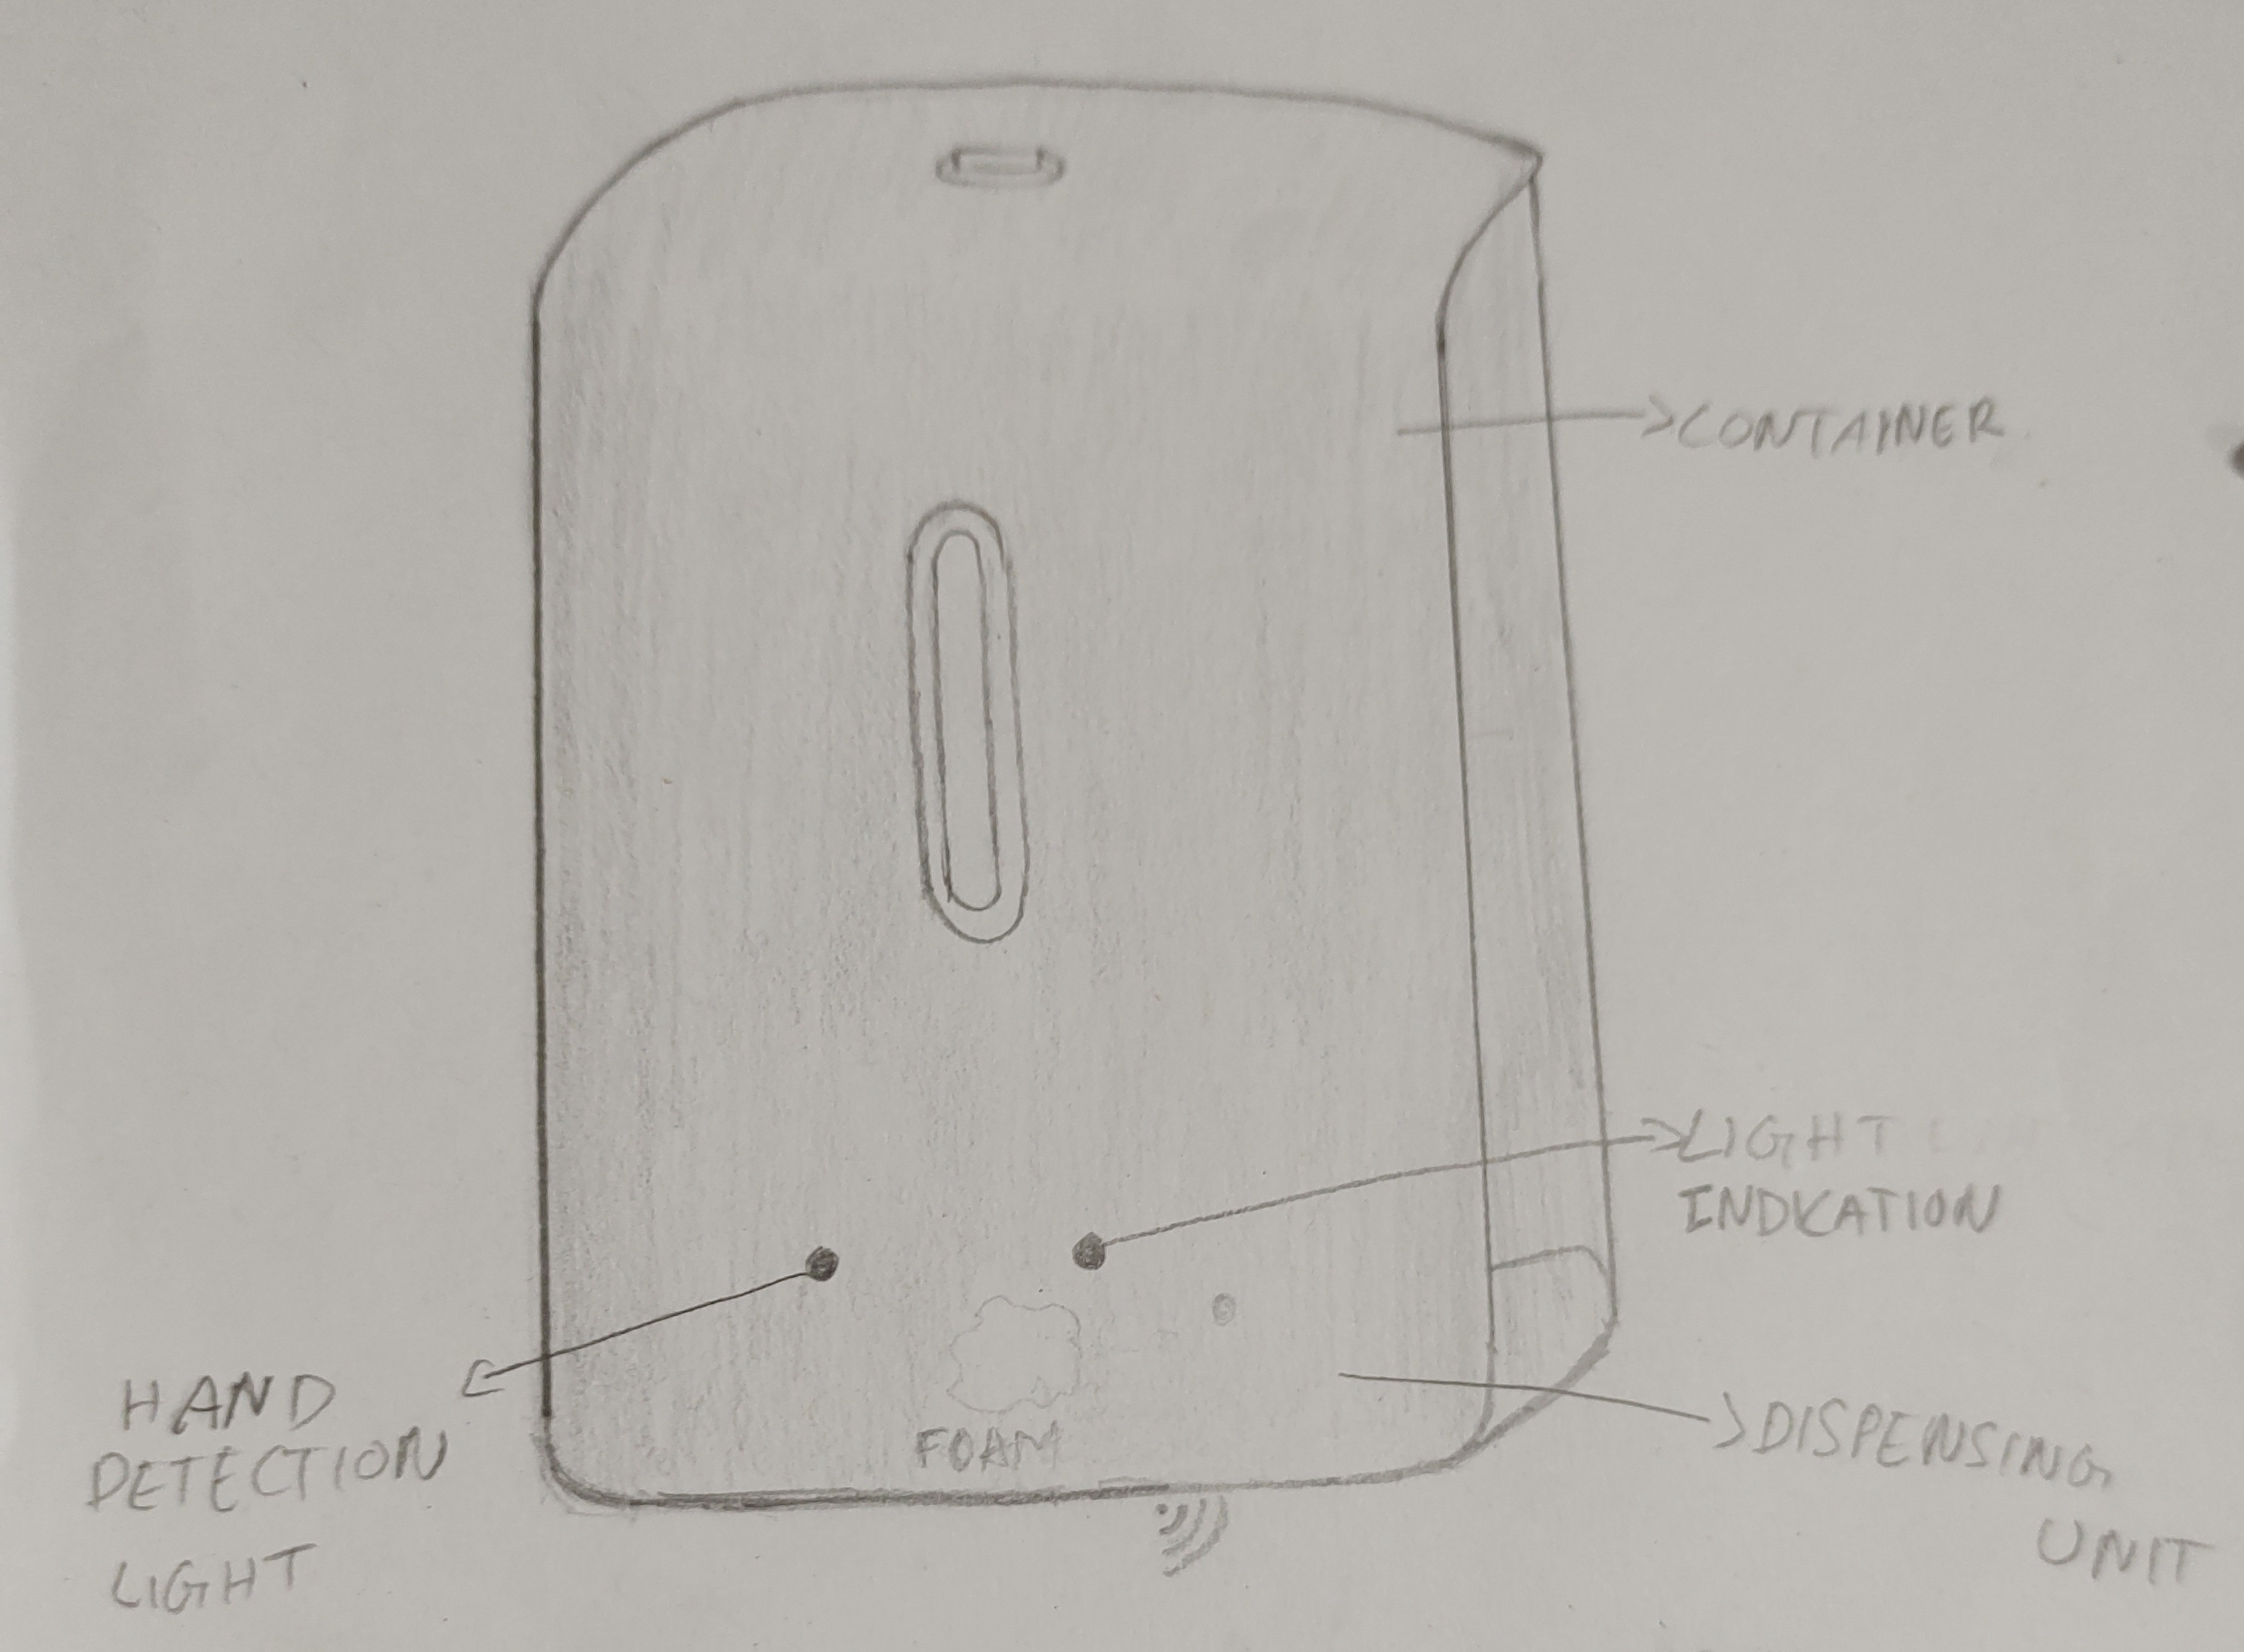 CONTAINER
LIGHT
INDICATION
HAND
DETECTION
LIGHT
FOAM
DISPENSING
UNIT